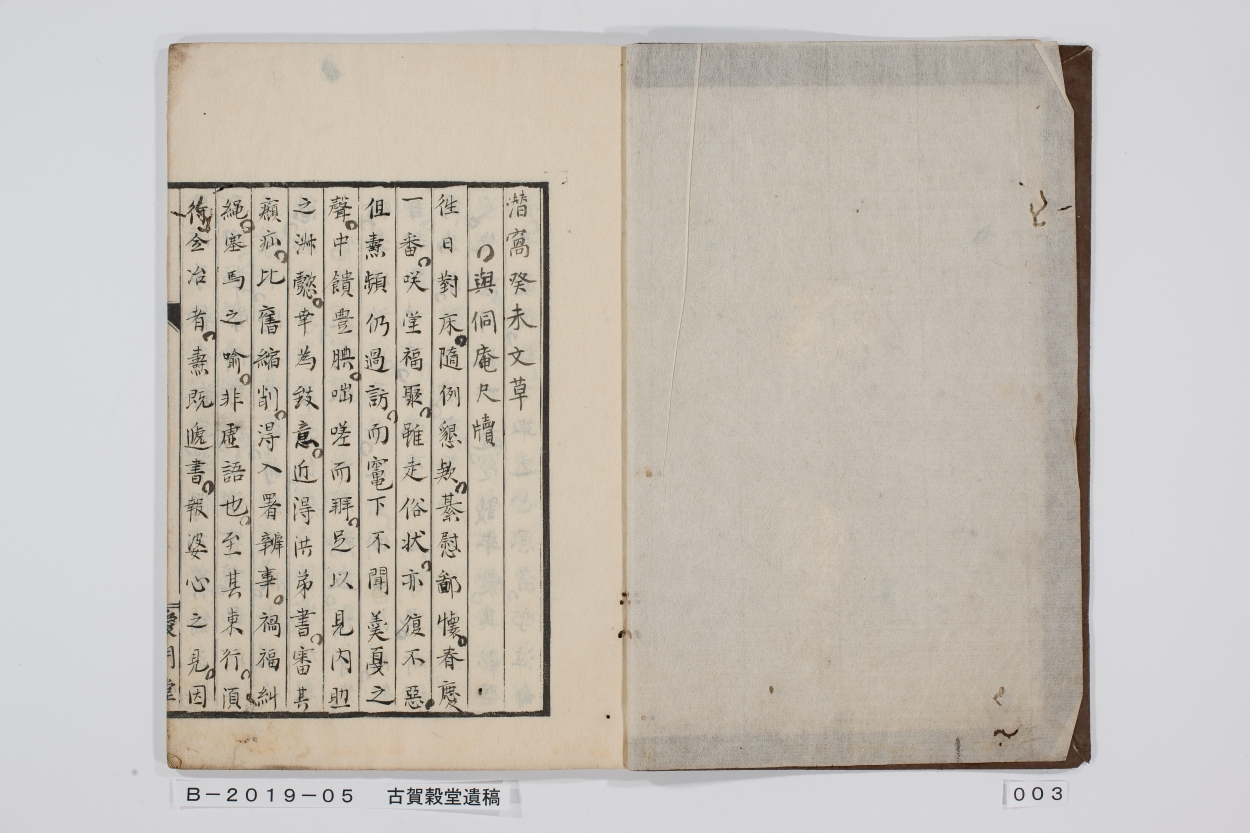 潜窩癸未文草
與侗庵尺牘
徃日對床隨例懇欵綦慰鄙懷春慶
一番咲堂福聚雖走俗状亦復不惡
但燾頻仍過訪而竈下不聞羹戞之
聲中饋豊腆咄嗟而辨足以見内助
之淋懿幸為致意近得洪弟書審其
癪疝比舊縮削得入署辨事禍福糾
縄塞馬之喻非虚語也至其東行須
待仝治者燾既遞書報婆心之見因
B－2019－05 古賀穀堂遺稿
003